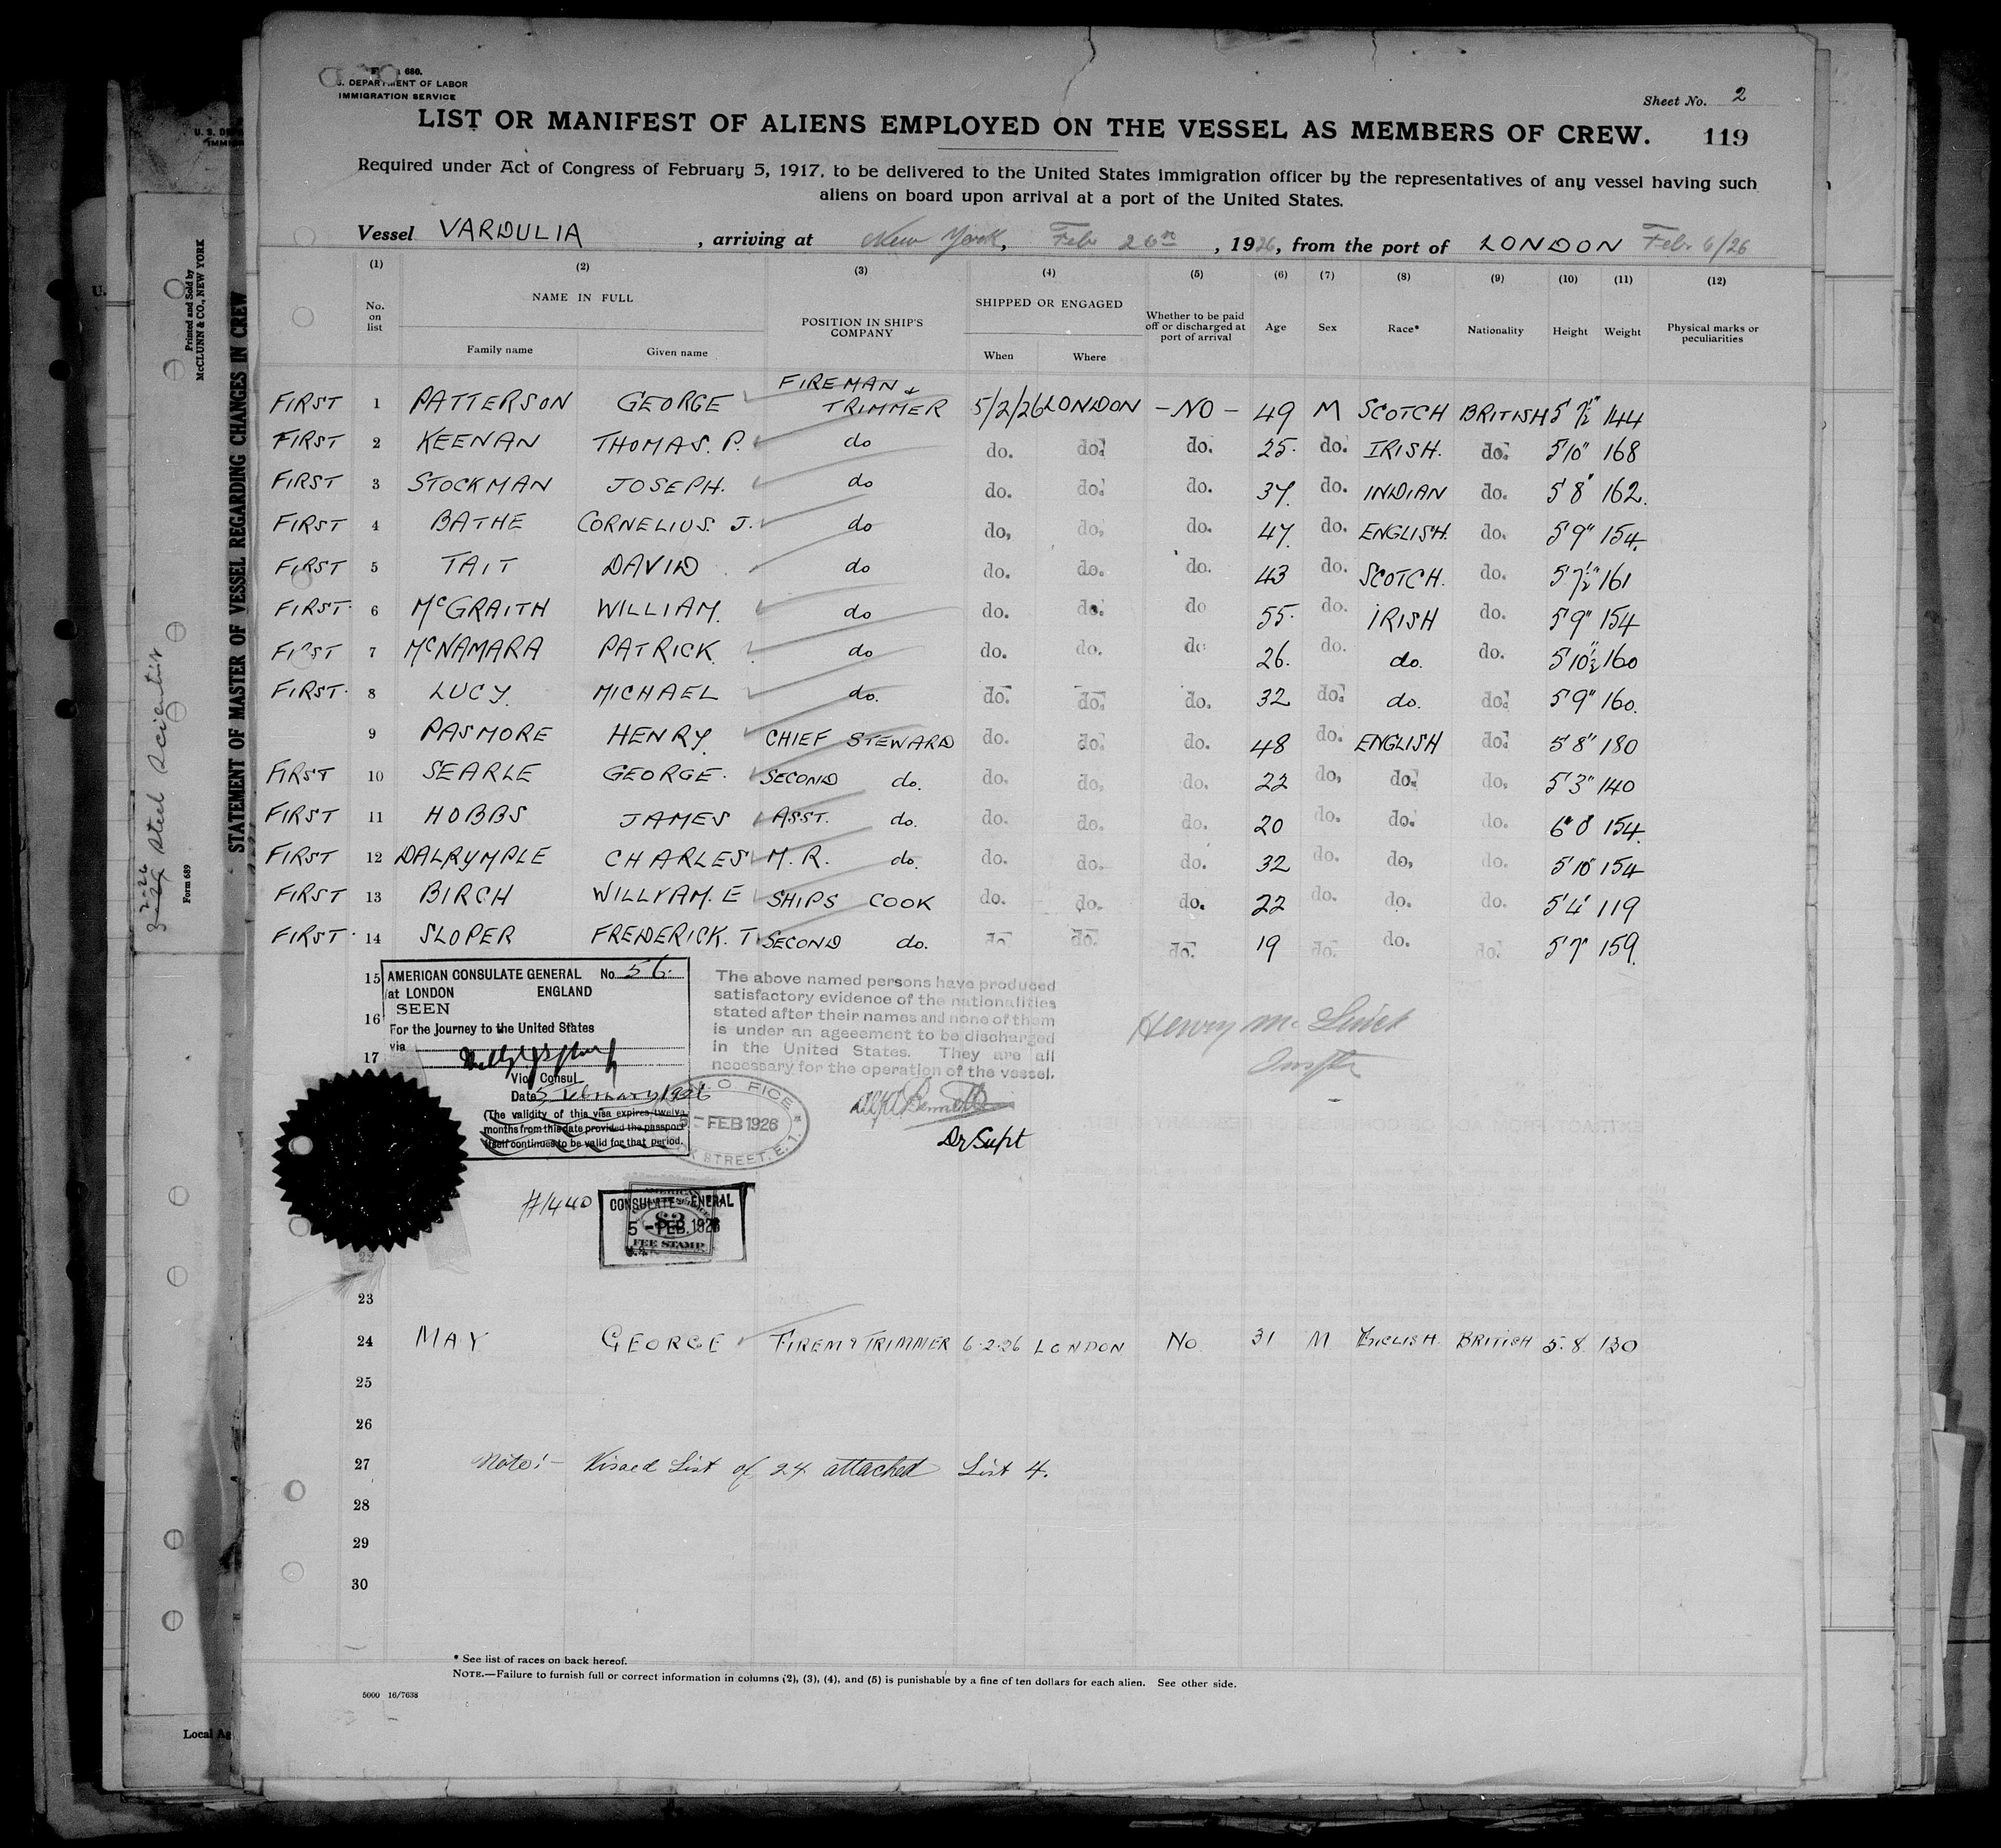 680.
DEPARTMENT OF LABOR
IMMIGRATION SERVICE
Sheet No. 2
LIST OR MANIFEST OF ALIENS EMPLOYED ON THE VESSEL AS MEMBERS OF CREW. 119
Required under Act of Congress of February 5, 1917, to be delivered to the United States immigration officer by the representatives of any vessel having such
aliens on board upon arrival at a port of the United States.
Vessel VARDULIA , arriving at New York, Feb 26th , 1926, from the port of LONDON Feb. 6/26
(1) (2) (3) (4) (5) (6) (7) (8) (9) (10) (11) (12)
No. on list NAME IN FULL POSITION IN SHIP'S COMPANY SHIPPED OR ENGAGED Whether to be paid off or discharged at port of arrival Age Sex Race* Nationality Height Weight Physical marks or peculiarities
Family name Given name When Where
FIRST 1 PATTERSON GEORGE FIREMAN & TRIMMER 5/2/26 LONDON - NO - 49 M SCOTCH BRITISH 5' 7½" 144
FIRST 2 KEENAN THOMAS. P. do do. do. do. 25. do. IRISH. do. 5'10" 168
FIRST 3 STOCKMAN JOSEPH. do do. do. do. 37. do. INDIAN do. 5'8" 162.
FIRST 4 BATHE CORNELIUS. J. do do, do, do. 47. do. ENGLISH. do. 5'9" 154.
FIRST 5 TAIT DAVID do do. do. do. 43 do. SCOTCH. do. 5'7½" 161
FIRST. 6 McGRAITH WILLIAM. do do. do. do 55. do. IRISH do. 5'9" 154
FIRST 7 McNAMARA PATRICK. do do. do. do 26. do. do. do. 5'10½" 160
FIRST. 8 LUCY. MICHAEL do. do. do. do. 32 do. do. do. 5'9" 160.
9 PASMORE HENRY. CHIEF STEWARD do. do. do. 48 do. ENGLISH do. 5'8" 180
FIRST 10 SEARLE GEORGE. SECOND do. do. do. do. 22 do, do. do. 5'3" 140
FIRST 11 HOBBS JAMES ASST. do. do. do. do. 20 do. do. do. 6'0" 154.
FIRST 12 DALRYMPLE CHARLES M. R. do. do. do. do. 32 do. do, do. 5'10 154
FIRST 13 BIRCH WILLIAM. E SHIPS COOK do. do. do. 22 do. do. do. 5'4' 119
FIRST. 14 SLOPER FREDERICK. T. SECOND do. do do. do. 19 do. do. do. 5'7" 159.
15 AMERICAN CONSULATE GENERAL No. 56.
at LONDON ENGLAND
16 SEEN
For the journey to the United States
17 via
Vice Consul
Date 5 February 1926
(The validity of this visa expires twelve
months from this date provided the passport
itself continues to be valid for that period.
The above named persons have produced
satisfactory evidence of the nationalities
stated after their names and none of them
is under an ageeement to be discharged
in the United States. They are all
necessary for the operation of the vessel.
FEB 1926
STREET. E. 1.
Bennett
Dr Supt
Henry
#1440
CONSULATE GENERAL
5 - FEB. 1926
FEE STAMP
22
23
24 MAY GEORGE FIREM & TRIMMER 6.2.26 LONDON No. 31 M ENGLISH. BRITISH 5.8. 130
25
26
27 Note:- Visaed List of 24 attached List 4.
28
29
30
* See list of races on back hereof.
NOTE.—Failure to furnish full or correct information in columns (2), (3), (4), and (5) is punishable by a fine of ten dollars for each alien. See other side.
5000 16/7638
STATEMENT OF MASTER OF VESSEL REGARDING CHANGES IN CREW
Printed and Sold by
McCLUNN & CO., NEW YORK
Form 689
Steel Scientist
Local Ag